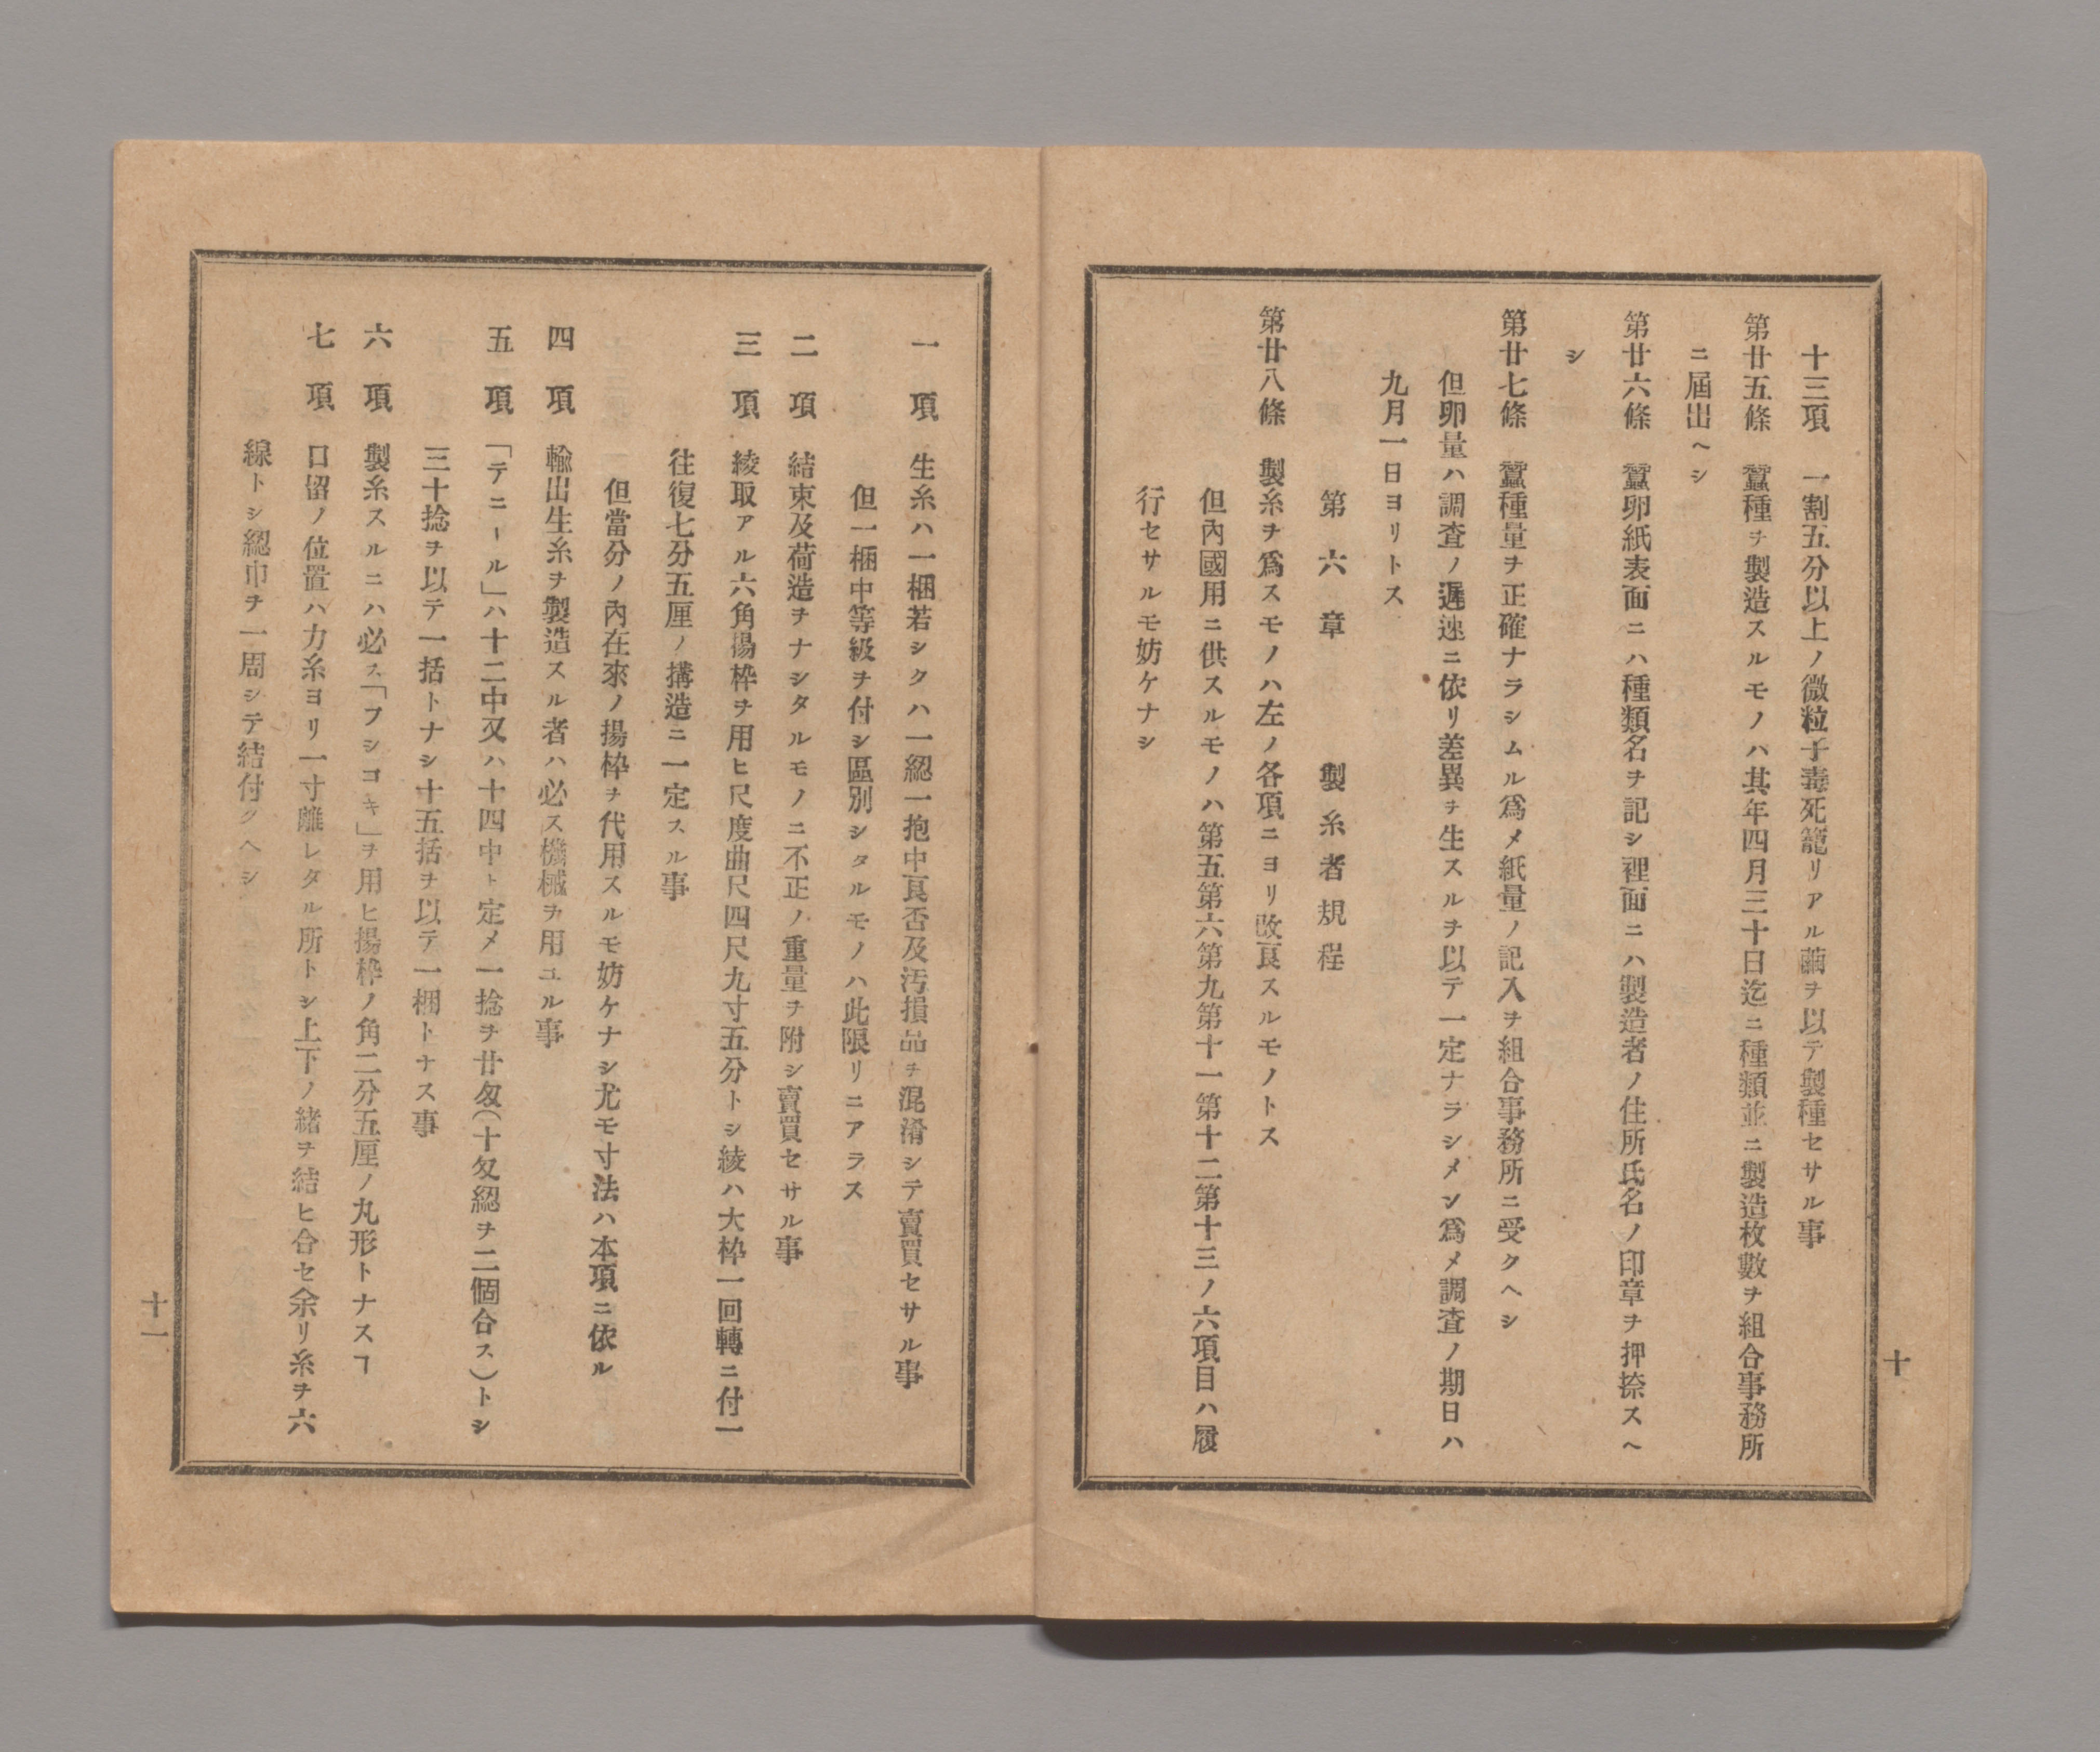 十三項　一割五分以上ノ微粒子毒死籠リアル繭ヲ以テ製種セサル事
第廿五條　蠶種ヲ製造スルモノハ其年四月三十日迄ニ種類並ニ製造枚數ヲ組合事務所
ニ屆出ヘシ
第廿六條　蠶卵紙表面ニハ種類名ヲ記シ裡面ニハ製造者ノ住所氏名ノ印章ヲ押捺スヘ
シ
第廿七條　蠶種量ヲ正確ナラシムル爲メ紙量ノ記入ヲ組合事務所ニ受クヘシ
但卵量ハ調査ノ遲速ニ依リ差異ヲ生スルヲ以テ一定ナラシメン爲メ調査ノ期日ハ
九月一日ヨリトス
第六章　製糸者規程
第廿八條　製糸ヲ爲スモノハ左ノ各項ニヨリ改良スルモノトス
但內國用ニ供スルモノハ第五第六第九第十一第十二第十三ノ六項目ハ履
行セサルモ妨ケナシ
十
一項　生糸ハ一梱若シクハ一綛一抱中良否及汚損品ヲ混淆シテ賣買セサル事
但一梱中等級ヲ付シ區別シタルモノハ此限リニアラス
二項　結束及荷造ヲナシタルモノニ不正ノ重量ヲ附シ賣買セサル事
三項　綾取アル六角揚枠ヲ用ヒ尺度曲尺四尺九寸五分トシ綾ハ大枠一回轉ニ付一
往復七分五厘ノ搆造ニ一定スル事
但當分ノ內在來ノ揚枠ヲ代用スルモ妨ケナシ尤モ寸法ハ本項ニ依ル
四項　輸出生糸ヲ製造スル者ハ必ス機械ヲ用ユル事
五項　「テニール」ハ十二中又ハ十四中ト定メ一捻ヲ廿匁（十匁綛ヲ二個合ス）トシ
三十捻ヲ以テ一括トナシ十五括ヲ以テ一梱トナス事
六項　製糸スルニハ必ス「フシコキ」ヲ用ヒ揚枠ノ角二分五厘ノ丸形トナスヿ
七項　口留ノ位置ハ力糸ヨリ一寸離レタル所トシ上下ノ緒ヲ結ヒ合セ余リ糸ヲ六
線トシ綛巾ヲ一周シテ結付クヘシ
十一